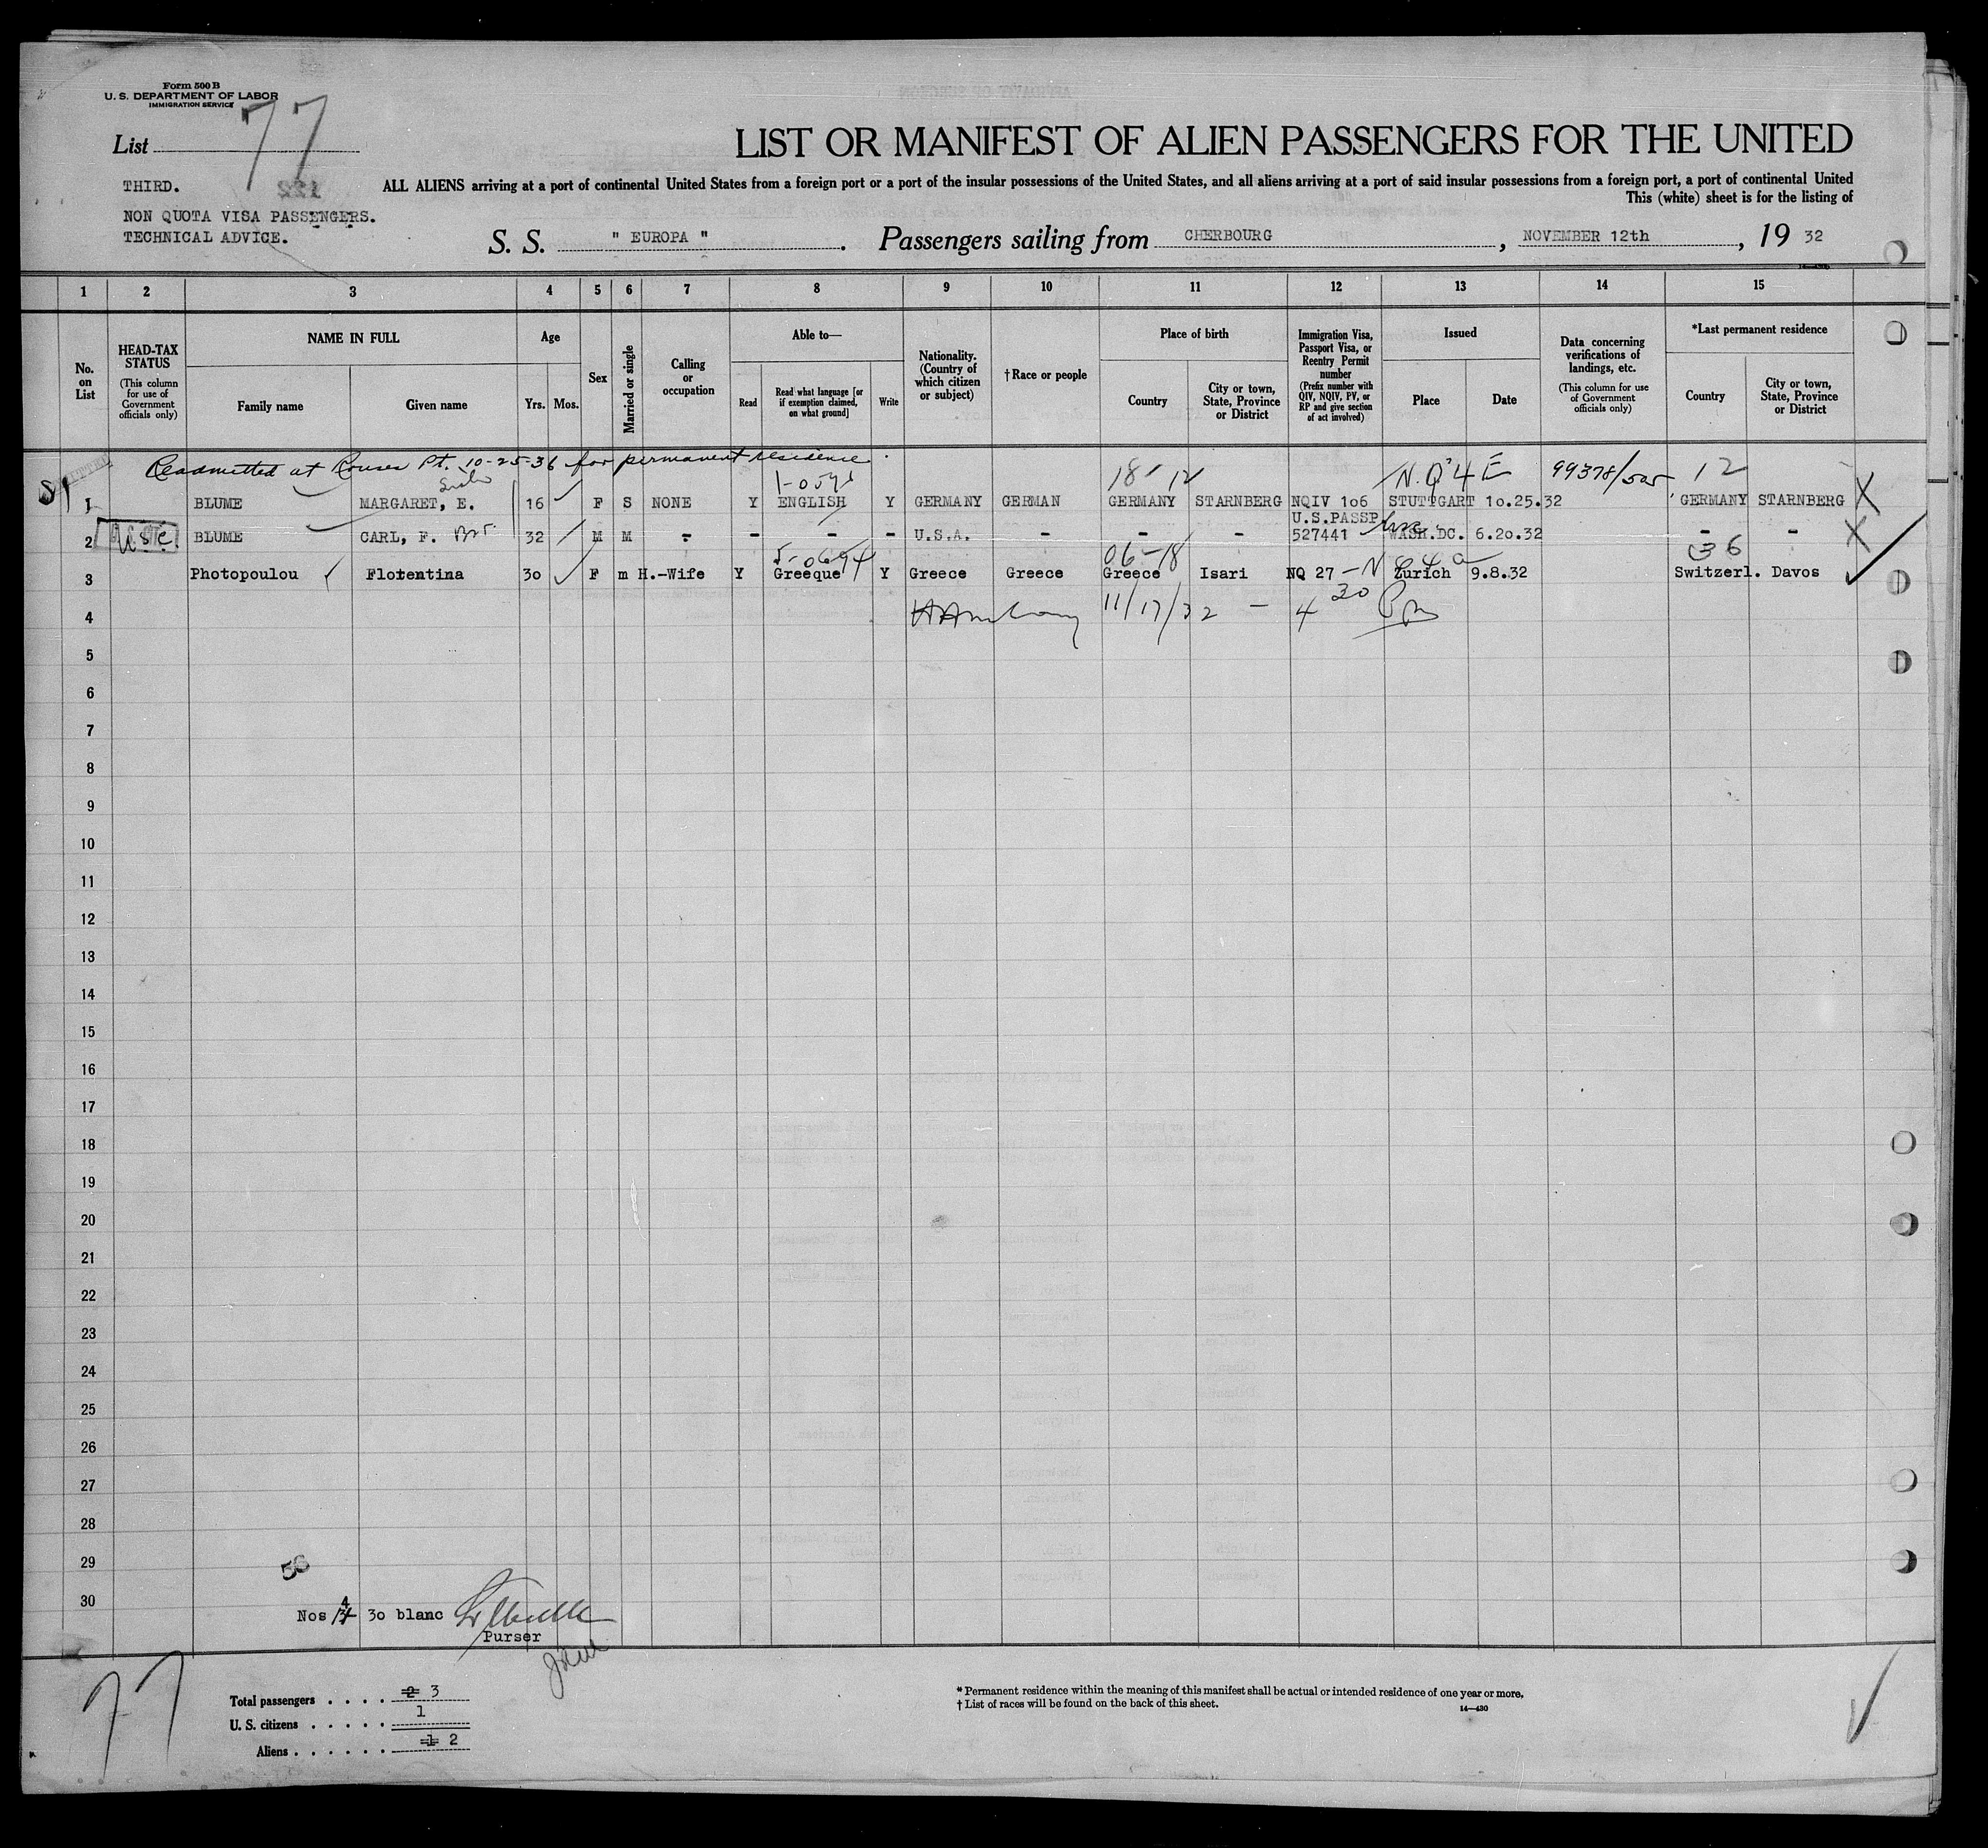 Form 500 B
U. S. DEPARTMENT OF LABOR
IMMIGRATION SERVICE
77
List
LIST OR MANIFEST OF ALIEN PASSENGERS FOR THE UNITED
THIRD.
ALL ALIENS arriving at a port of continental United States from a foreign port or a port of the insular possessions of the United States, and all aliens arriving at a port of said insular possessions from a foreign port, a port of continental United
This (white) sheet is for the listing of
NON QUOTA VISA PASSENGERS.
TECHNICAL ADVICE.
S. S. " EUROPA ". Passengers sailing from CHERBOURG, NOVEMBER 12th, 19 32
1 2 3 4 5 6 7 8 9 10 11 12 13 14 15
No. on List
HEAD-TAX STATUS
(This column for use of Government officials only)
NAME IN FULL
Family name
Given name
Age
Yrs. Mos.
Sex
Married or single
Calling or occupation
Able to—
Read
Read what language [or if exemption claimed, on what ground]
Write
Nationality. (Country of which citizen or subject)
†Race or people
Place of birth
Country
City or town, State, Province or District
Immigration Visa, Passport Visa, or Reentry Permit number
(Prefix number with QIV, NQIV, PV, or RP and give section of act involved)
Issued
Place
Date
Data concerning verifications of landings, etc.
(This column for use of Government officials only)
*Last permanent residence
Country
City or town, State, Province or District
Readmitted at Rouses Pt. 10-25-36 for permanent residence
18-12 N.Q 4 E 99378/ 12
1 BLUME MARGARET, E. 16 F S NONE Y ENGLISH Y GERMANY GERMAN GERMANY STARNBERG NQIV 1o6 STUTTGART 1o.25.32 GERMANY STARNBERG X
U.S.PASSP
2 USC BLUME CARL, F. 32 M M - - - - U.S.A. - - - 527441 WASH.DC. 6.20.32 - - X
06-18 36
3 Photopoulou Florentina 3o F m H.-Wife Y Greeque Y Greece Greece Greece Isari NQ 27 Zurich 9.8.32 Switzerl. Davos
4 11/17/32 - 4 30 Pm
5
6
7
8
9
10
11
12
13
14
15
16
17
18
19
20
21
22
23
24
25
26
27
28
29
30
50
Nos 4 3o blanc
Purser
77
Total passengers . . . . 2 3
U. S. citizens . . . . . 1
Aliens . . . . . . 1 2
* Permanent residence within the meaning of this manifest shall be actual or intended residence of one year or more.
† List of races will be found on the back of this sheet.
14—430